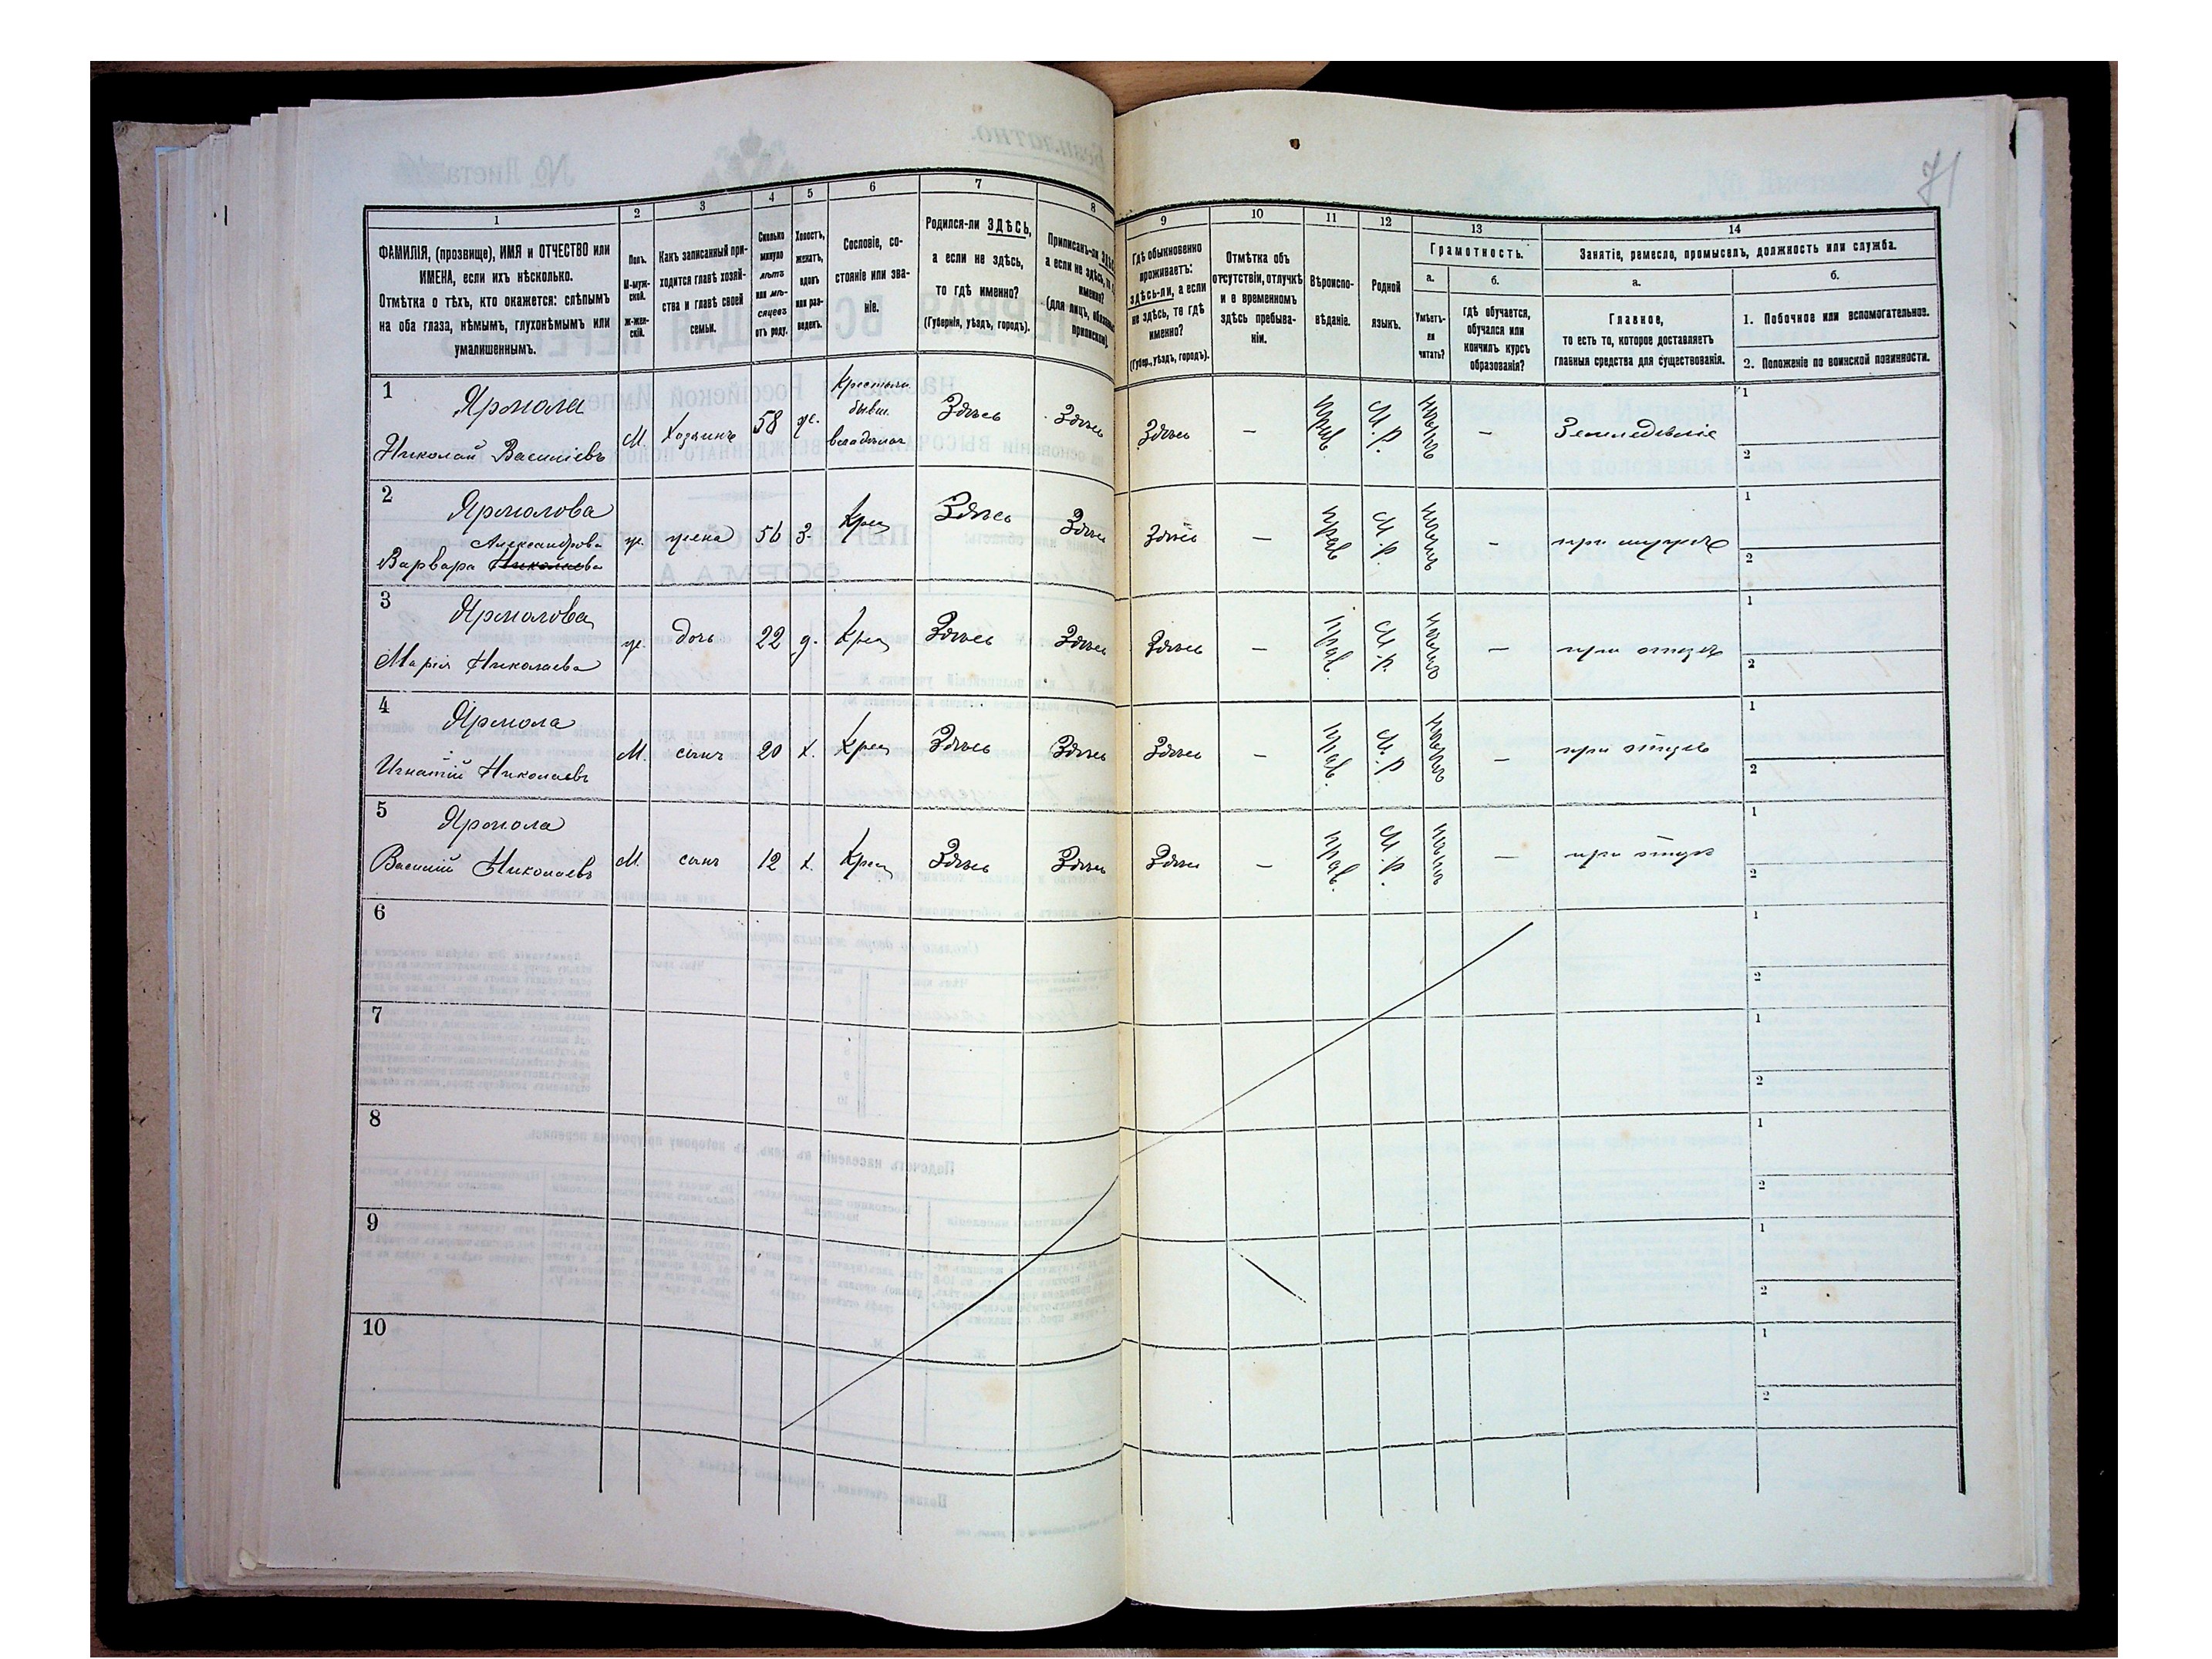 71
1
2
3
4
5
6
7
8
ФАМИЛІЯ, (прозвище), ИМЯ и ОТЧЕСТВО или
ИМЕНА, если ихъ нѣсколько.
Отмѣтка о тѣхъ, кто окажется: слѣпымъ
на оба глаза, нѣмымъ, глухонѣмымъ или
умалишеннымъ.
Полъ.
М-муж-
ской.
ж-жен-
скій.
Какъ записанный при-
ходится главѣ хозяй-
ства и главѣ своей
семьи.
Сколько
минуло
лѣтъ
или мѣ-
сяцевъ
отъ роду.
Холостъ,
женатъ,
вдовъ
или раз-
веденъ.
Сословіе, со-
стояніе или зва-
ніе.
Родился-ли ЗДѢСЬ,
а если не здѣсь,
то гдѣ именно?
(Губернія, уѣздъ, городъ).
Приписанъ-ли
а если не здѣсь,
именно?
(для лицъ,
9
10
11
12
13
14
Гдѣ обыкновенно
проживаетъ:
здѣсь-ли, а если
не здѣсь, то гдѣ
именно?
(Губер., уѣздъ, городъ).
Отмѣтка объ
отсутствіи, отлучкѣ
и о временномъ
здѣсь пребыва-
ніи.
Вѣроиспо-
вѣданіе.
Родной
языкъ.
Грамотность.
а.
Умѣетъ-
ли
читать?
б.
гдѣ обучается,
обучался или
кончилъ курсъ
образованія?
Занятіе, ремесло, промыселъ, должность или служба.
а.
Главное,
то есть то, которое доставляетъ
главныя средства для существованія.
б.
1. Побочное или вспомогательное.
2. Положеніе по воинской повинности.
1
Ярмола
Николай Василіевъ
М.
Хозяинъ
58
ж.
бывш.
Здѣсь
Здѣсь
Здѣсь
—
прав.
М. р.
—
Земледѣліе
1
2
2
Ярмолова
Александрова
Варвара Николаева
ж.
жена
56
З.
Крес
Здѣсь
Здѣсь
Здѣсь
—
прав
М. р.
—
при мужѣ
1
2
3
Ярмолова
Марія Николаева
ж.
дочь
22
д.
Крес
Здѣсь
Здѣсь
Здѣсь
—
прав.
М. р.
—
при отцѣ
1
2
4
Ярмола
Игнатій Николаевъ
М.
сынъ
20
х.
Крес
Здѣсь
Здѣсь
Здѣсь
—
прав.
М. р.
—
при отцѣ
1
2
5
Ярмола
Василій Николаевъ
М.
сынъ
12
х.
Крес
Здѣсь
Здѣсь
Здѣсь
—
прав.
М. р.
—
при отцѣ
1
2
6
1
2
7
1
2
8
1
2
9
1
2
10
1
2